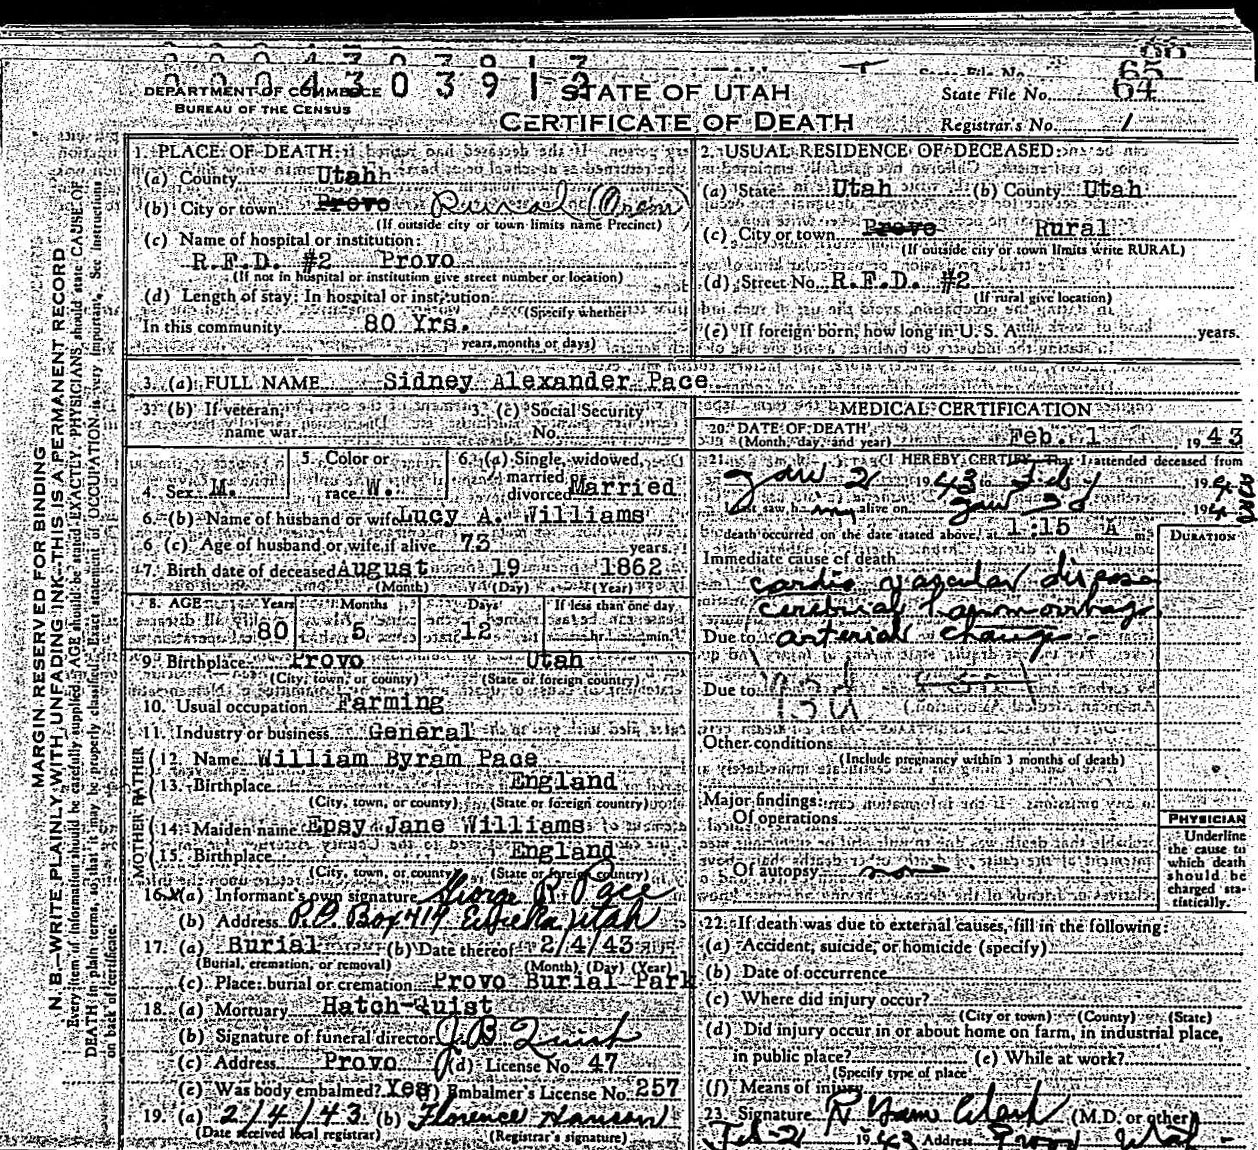 0 0 0 4 3 0 3 9 1 2
DEPARTMENT OF COMMERCE
BUREAU OF THE CENSUS
STATE OF UTAH
CERTIFICATE OF DEATH
State File No. 64
Registrar's No. 1
MARGIN RESERVED FOR BINDING
N. B.—WRITE PLAINLY WITH UNFADING INK—THIS IS A PERMANENT RECORD
Every item of information should be carefully supplied. AGE should be stated EXACTLY. PHYSICIANS should state CAUSE OF
DEATH in plain terms, so that it may be properly classified. Exact statement of OCCUPATION is very important. See Instructions
on back of certificate.
1. PLACE OF DEATH:
(a) County Utah
(b) City or town Provo Rural (Orem)
(If outside city or town limits name Precinct)
(c) Name of hospital or institution:
R.F.D. #2 Provo
(If not in hospital or institution give street number or location)
(d) Length of stay: In hospital or institution
(Specify whether
In this community 80 Yrs.
years, months or days)
2. USUAL RESIDENCE OF DECEASED:
(a) State Utah (b) County Utah
(c) City or town Provo Rural
(If outside city or town limits write RURAL)
(d) Street No. R.F.D. #2
(If rural give location)
(e) If foreign born, how long in U. S. A. years.
3. (a) FULL NAME Sidney Alexander Pace
3. (b) If veteran,
name war
3. (c) Social Security
No.
4. Sex M.
5. Color or
race W.
6. (a) Single, widowed,
married,
divorced Married
6. (b) Name of husband or wife Lucy A. Williams
6. (c) Age of husband or wife, if alive 73 years.
7. Birth date of deceased August 19 1862
(Month) (Day) (Year)
8. AGE Years Months Days If less than one day
80 5 12 hr. min.
9. Birthplace Provo Utah
(City, town, or county) (State or foreign country)
10. Usual occupation Farming
11. Industry or business General
FATHER
12. Name William Byram Pace
13. Birthplace England
(City, town, or county) (State or foreign country)
MOTHER
14. Maiden name Epsy Jane Williams
15. Birthplace England
(City, town, or county) (State or foreign country)
16. (a) Informant's own signature George R Pace
(b) Address P.O. Box 414 Eureka, Utah
17. (a) Burial (b) Date thereof 2/4/43
(Burial, cremation, or removal) (Month) (Day) (Year)
(c) Place: burial or cremation Provo Burial Park
18. (a) Mortuary Hatch-Quist
(b) Signature of funeral director J. B Quist
(c) Address Provo (d) License No. 47
(e) Was body embalmed? Yes (f) Embalmer's License No. 257
19. (a) 2/4/43 (b) Florence Hanson
(Date received local registrar) (Registrar's signature)
MEDICAL CERTIFICATION
20. DATE OF DEATH
(Month, day, and year) Feb. 1 , 1943
21. I HEREBY CERTIFY That I attended deceased from
Jan 2 1943 to Feb 1 194
I last saw him alive on Jan 194
death occurred on the date stated above, at 1:15 A m.
DURATION
Immediate cause of death
cardio vascular disease
cerebral haemorrhage
Due to arterial changes
Due to
93d
Other conditions
(Include pregnancy within 3 months of death)
Major findings:
Of operations
Of autopsy none
PHYSICIAN
Underline
the cause to
which death
should be
charged sta-
tistically.
22. If death was due to external causes, fill in the following:
(a) Accident, suicide, or homicide (specify)
(b) Date of occurrence
(c) Where did injury occur?
(City or town) (County) (State)
(d) Did injury occur in or about home on farm, in industrial place,
in public place? (e) While at work?
(Specify type of place)
(f) Means of injury
23. Signature Clark (M.D. or other)
Feb-2 1943 Address Provo Utah